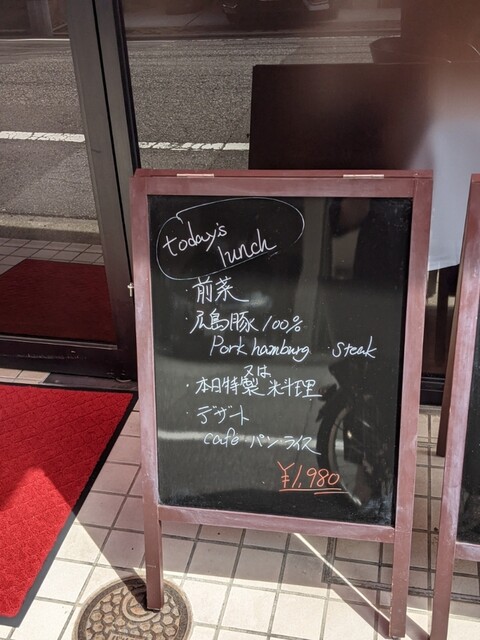 today's
lunch
・前菜
・広島豚100%
Pork hamburg steak
又は
・本日特製 米料理
・デザート
cafe・パン ライス
¥1,980